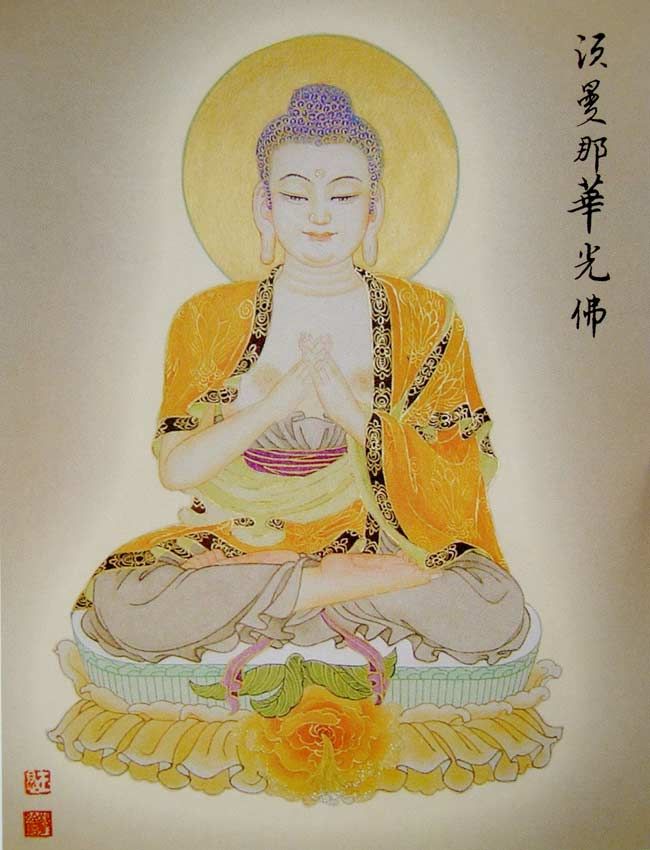 须曼那華光佛